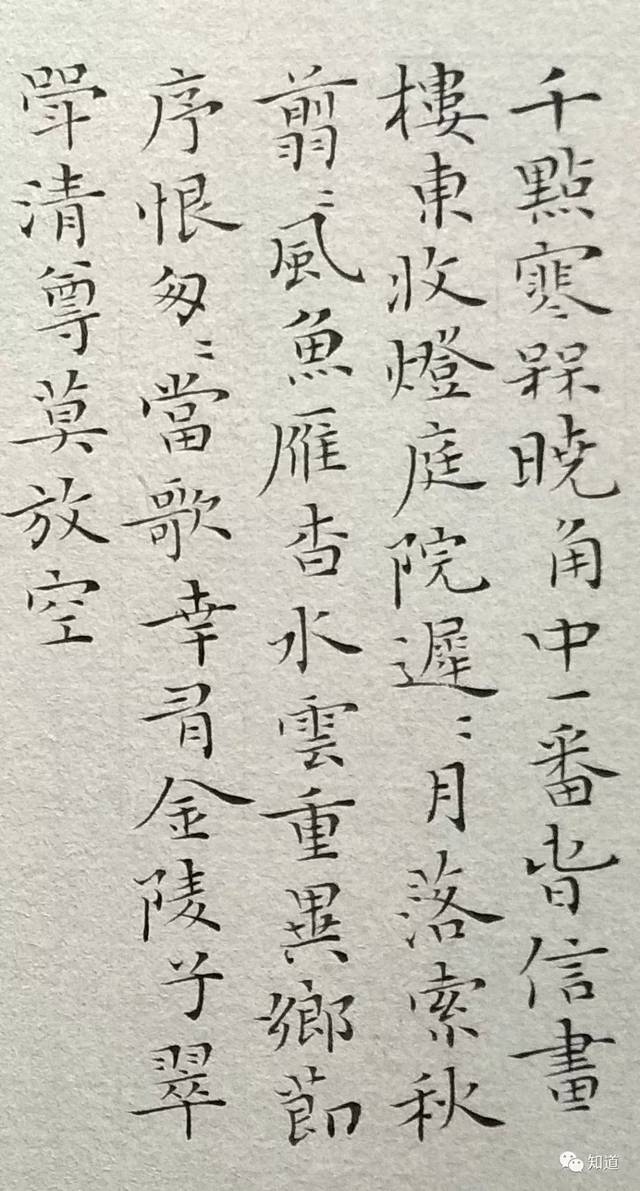 千點寒槑曉角中一番旹信畫
樓東收燈庭院遲〻月落索秋
翦〻風魚雁杳水雲重異鄉節
序恨匆〻當歌幸有金陵子翠
斝清尊莫放空
知道